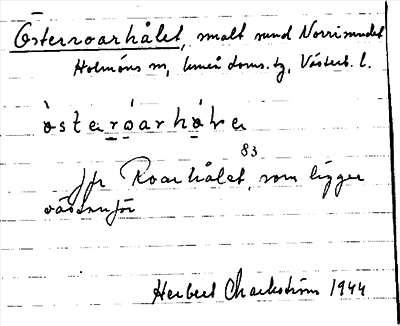 Österroarhålet, smalt sund Norrsundet
Holmöns sn, Umeå doms.tg, Västerb. l.
òsteròarhòlre
83
Jfr Roarhålet, som ligger
västanför
Herbert 1944